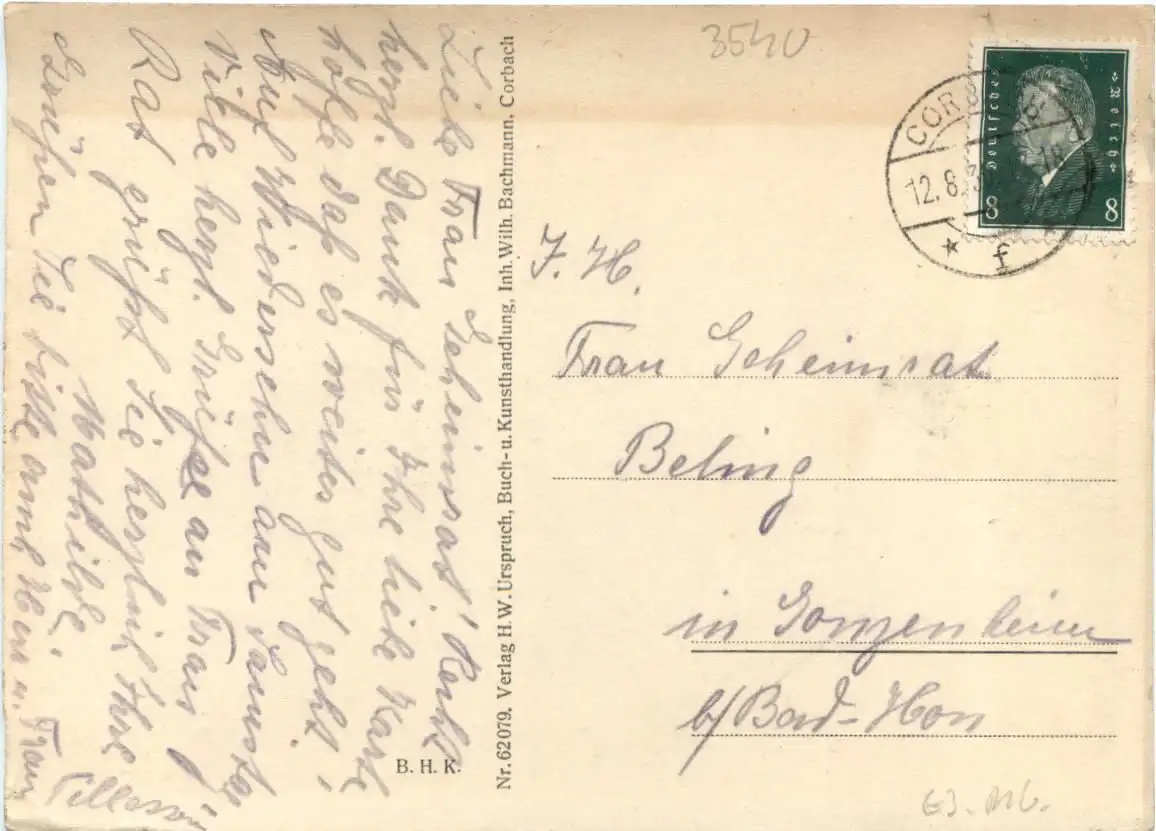 Liebe Frau Geheimrat! Herzl.
herzl. Dank für Ihre liebe Karte
hoffe daß es weiter gut geht!
Auf Wiedersehn am Samstag,
Viele herzl. Grüße an Frau
Rat grüßt Sie herzlich Ihre
Mathilde.
Grüßen Sie bitte auch Herr u. Frau
Nr. 62079. Verlag H. W. Urspruch, Buch- u. Kunsthandlung, Inh. Wilh. Bachmann, Corbach
B. H. K.
3540
Deutsches Reich
8 8
CORB
12.8.3
18
f
J. H.
Frau Geheimrat
Beling
in Gonzenheim
b/ Bad-Hom